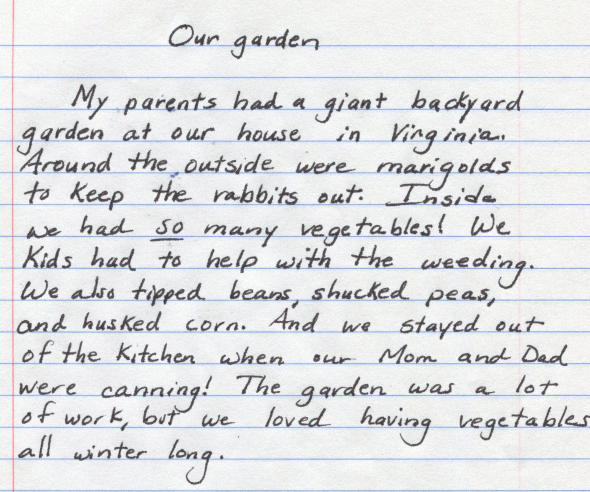 Our garden
My parents had a giant backyard
garden at our house in Virginia.
Around the outside were marigolds
to keep the rabbits out. Inside
we had so many vegetables! We
kids had to help with the weeding.
We also tipped beans, shucked peas,
and husked corn. And we stayed out
of the kitchen when our Mom and Dad
were canning! The garden was a lot
of work, but we loved having vegetables
all winter long.